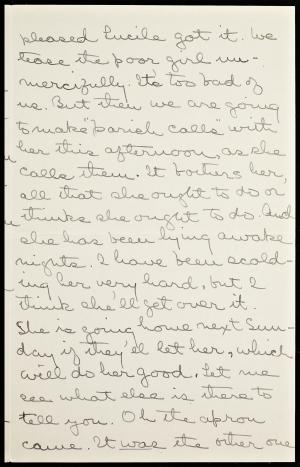 pleased Lucile got it. We
tease the poor girl un-
mercifully. It's too bad of
us. But then we are going
to make "parish calls" with
her this afternoon, as she
calls them. It bothers her,
all that she ought to do or
thinks she ought to do. And
she has been lying awake
nights. I have been scold-
ing her very hard, but I
think she'll get over it.
She is going home next Sun-
day if they'll let her, which
will do her good. Let me
see what else is there to
tell you. Oh the apron
came. It was the other one